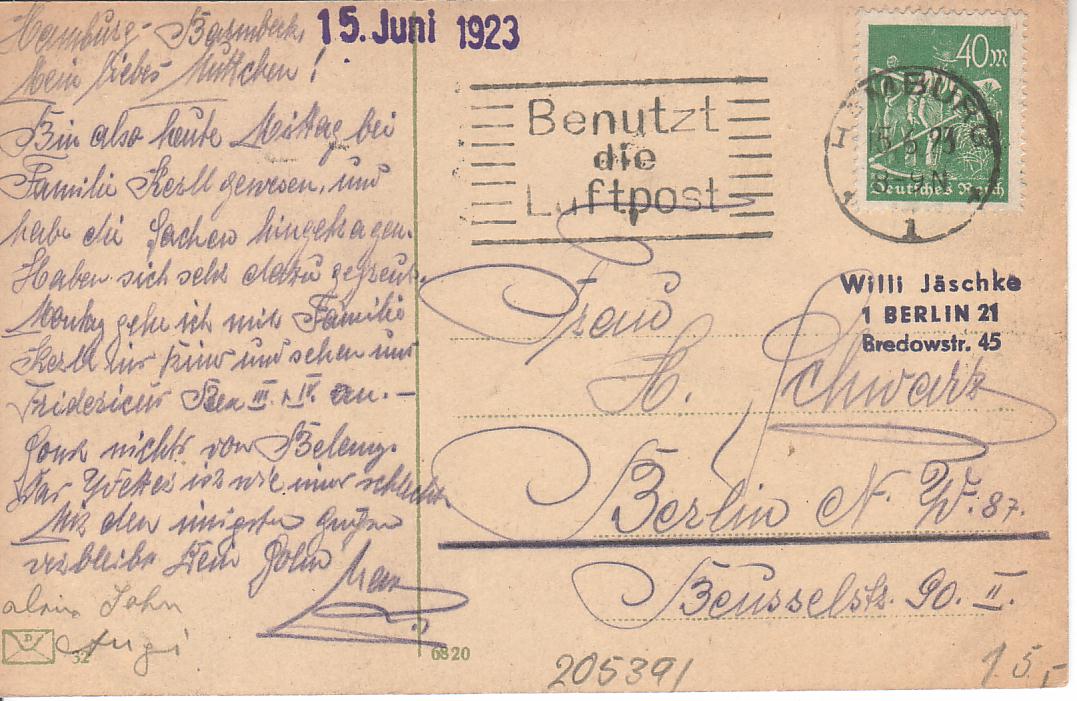 Hamburg-Barmbeck,
15. Juni 1923
Mein liebes Muttchen!
Bin also heute Mittag bei
Familie Kerll gewesen, und
habe die Sachen hingetragen.
Haben sich sehr dazu gefreut.
Montag gehe ich mit Familie
Kerll ins Kino und sehen uns
Fridericus Rex III. u. IV. an.-
Sonst nichts von Belang.
Das Wetter ist wie immer schlecht.
Mit den innigsten Grüßen
verbleibt Dein Sohn
Max
John
6820
32
D
Benutzt
die
Luftpost
40M
Deutsches Reich
HAMBURG
15.6.23
8-9N
1
Willi Jäschke
1 BERLIN 21
Bredowstr. 45
Frau
H. Schwarz
Berlin N. W. 87.
Beusselstr. 90. II.
205391
15,-